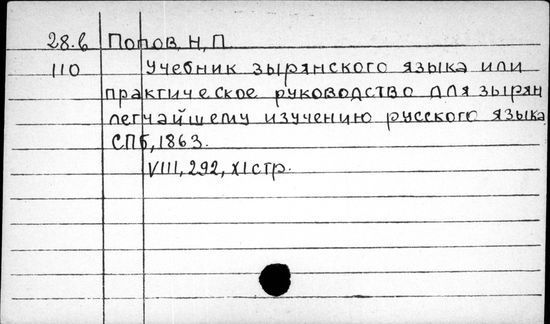 28.б Попов, Н, П.
110 Учебник зырянского языка или
практическое руководство для зырян
легчайшему изучению русского языка
СПб, 1863.
VIII, 292, XI стр.